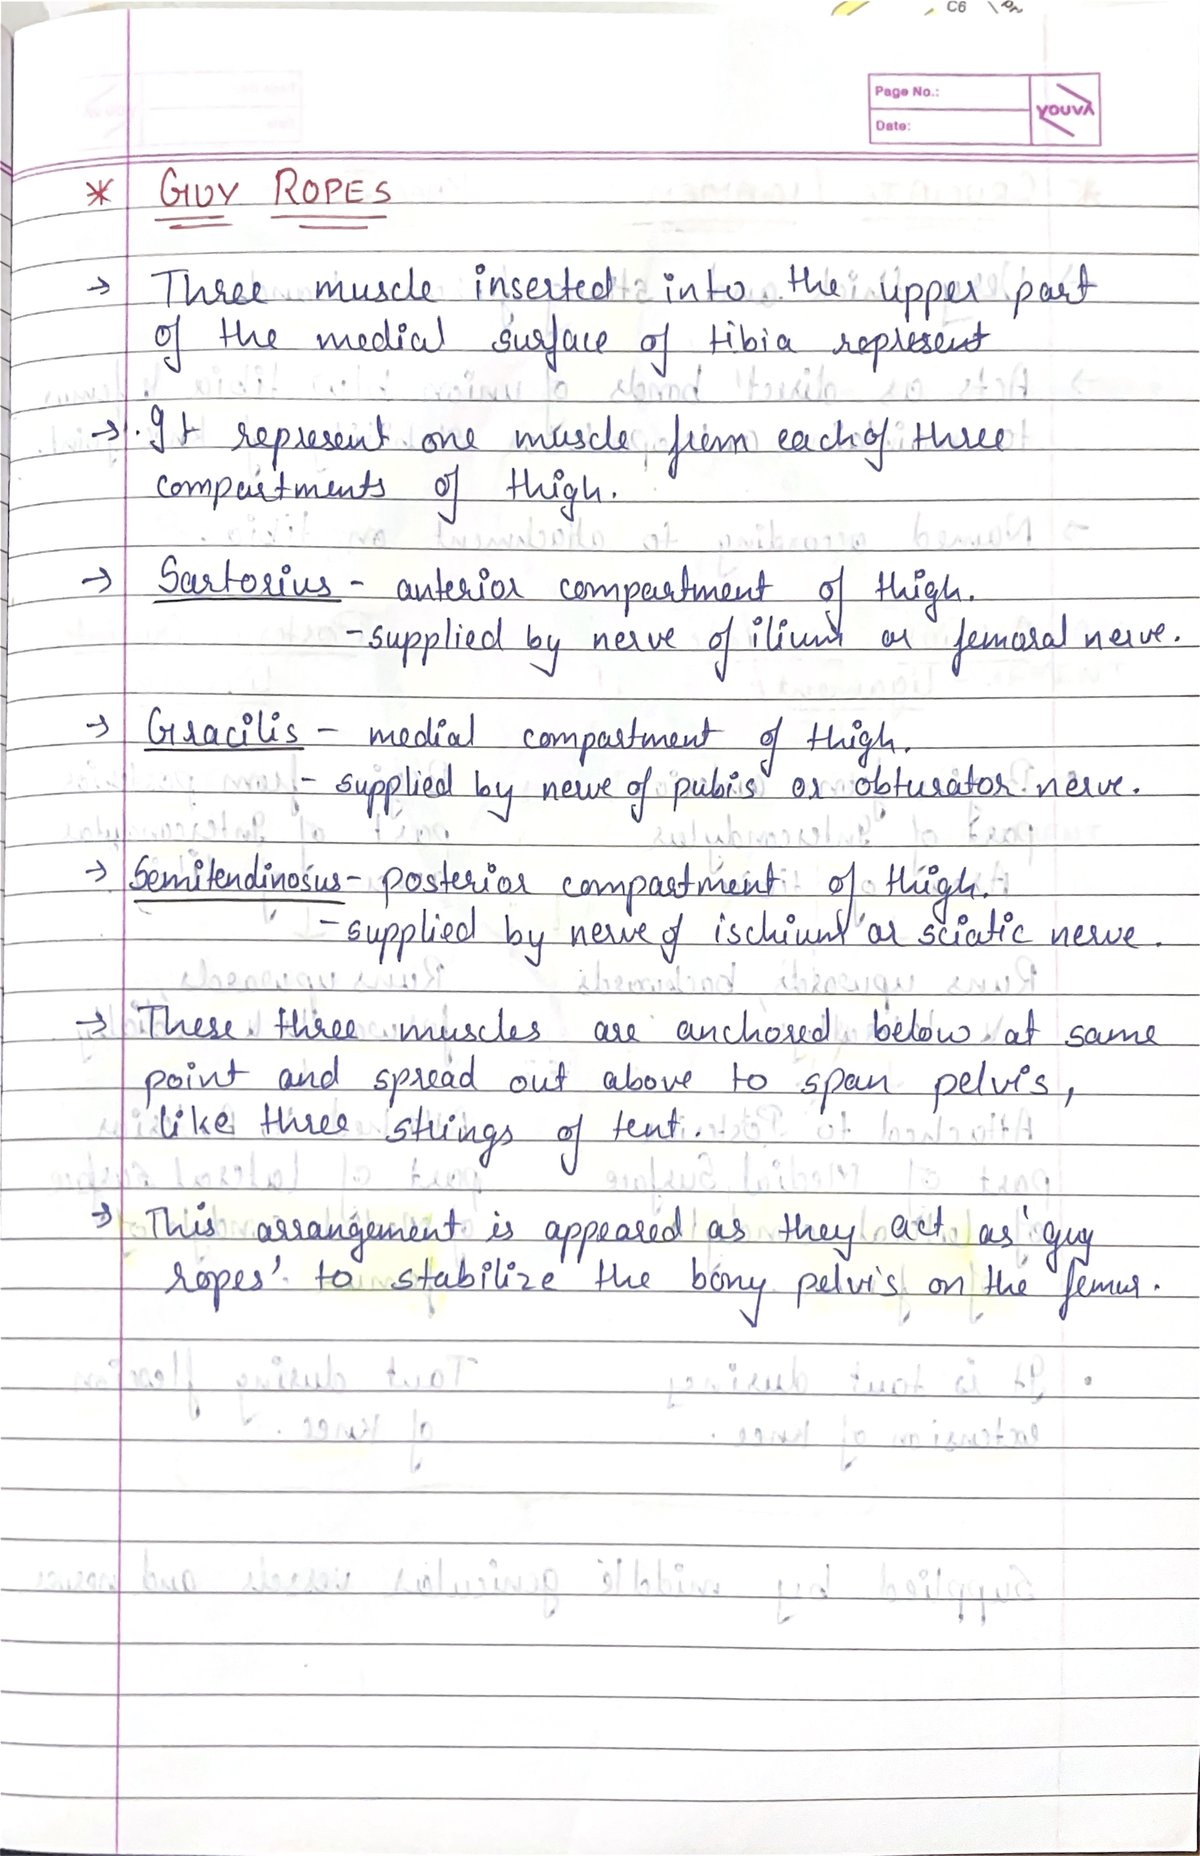 C6
Page No.:
Date:
YOUVA
* GUY ROPES
→ Three muscle inserted into the upper part
of the medial surface of tibia represent
→ It represent one muscle from each of three
compartments of thigh.
→ Sartorius - anterior compartment of thigh.
- supplied by nerve of ilium or femoral nerve.
→ Gracilis - medial compartment of thigh.
- supplied by nerve of pubis or obturator nerve.
→ Semitendinosus - posterior compartment of thigh.
- supplied by nerve of ischium or sciatic nerve.
→ These three muscles are anchored below at same
point and spread out above to span pelvis,
like three strings of tent.
→ This arrangement is appeared as they act as 'guy
ropes' to stabilize the bony pelvis on the femur.